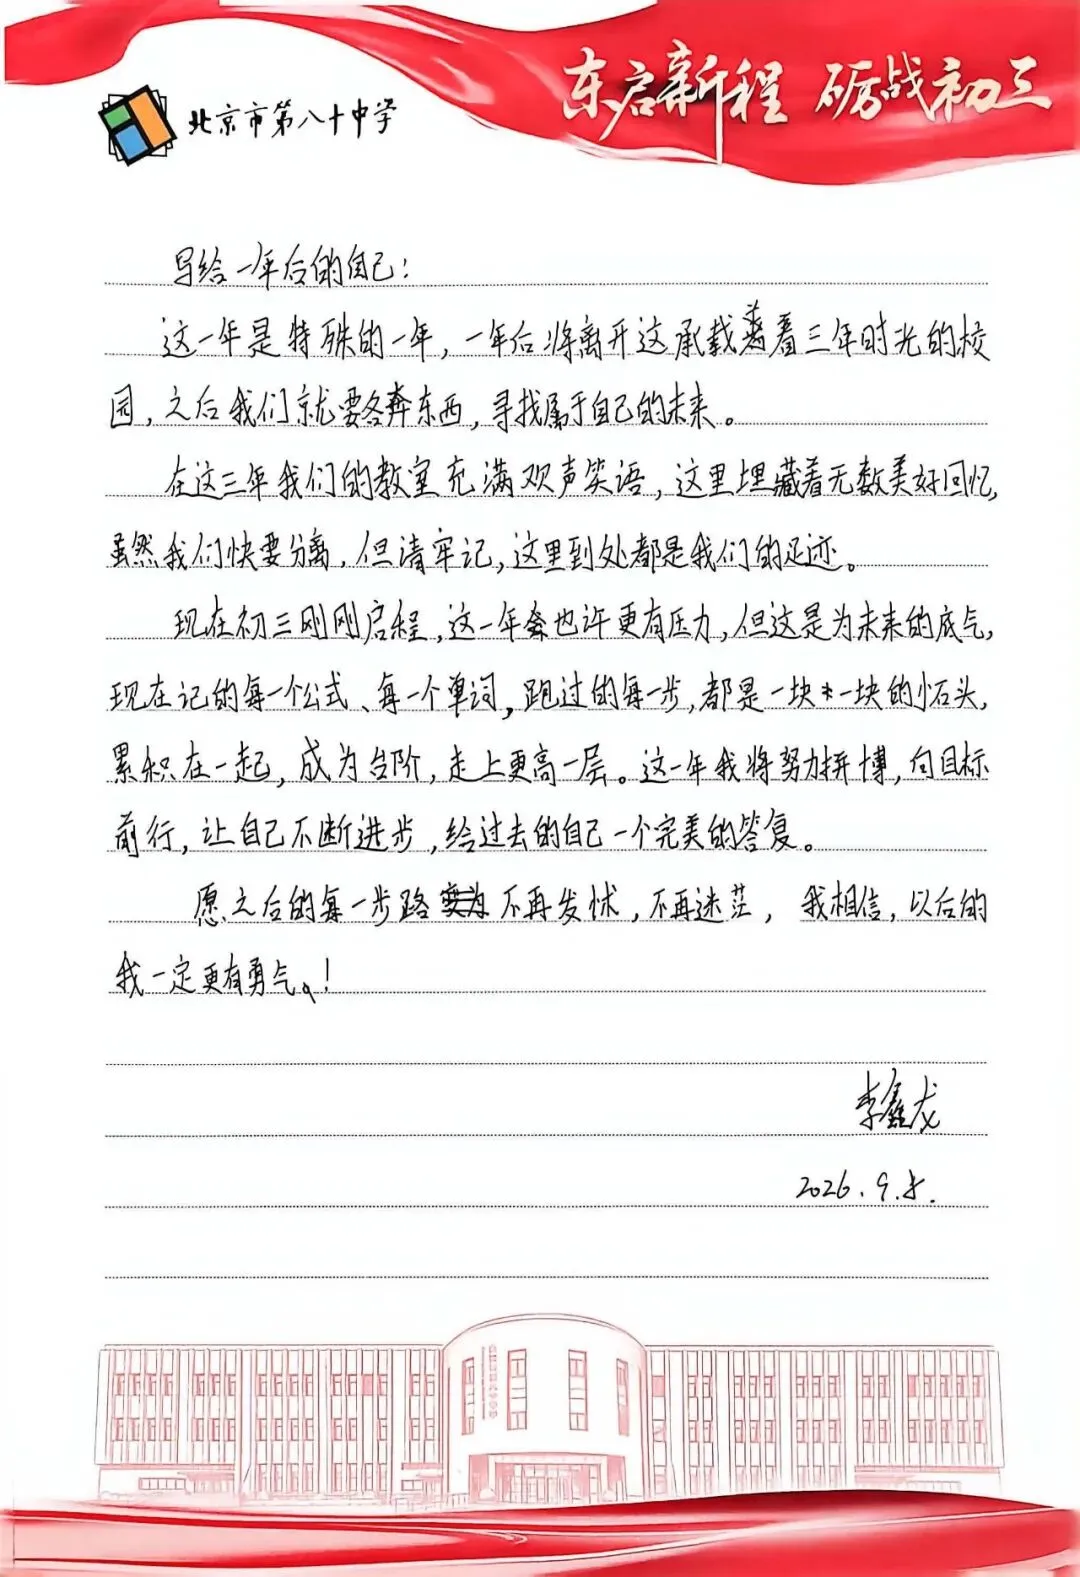 北京市第八十中学
东启新程 砺战初三
写给一年后的自己：
这一年是特殊的一年，一年后将离开这承载着三年时光的校
园，之后我们就要各奔东西，寻找属于自己的未来。
在这三年我们的教室充满欢声笑语，这里埋藏着无数美好回忆，
虽然我们快要分离，但请牢记，这里到处都是我们的足迹。
现在初三刚刚启程，这一年也许更有压力，但这是为未来的底气，
现在记的每一个公式、每一个单词，跑过的每一步，都是一块一块的石头，
累积在一起，成为台阶，走上更高一层。这一年我将努力拼搏，向目标
前行，让自己不断进步，给过去的自己一个完美的答复。
愿之后的每一步路不再发怵，不再迷茫，我相信，以后的
我一定更有勇气。！
李鑫龙
2026.9.5.